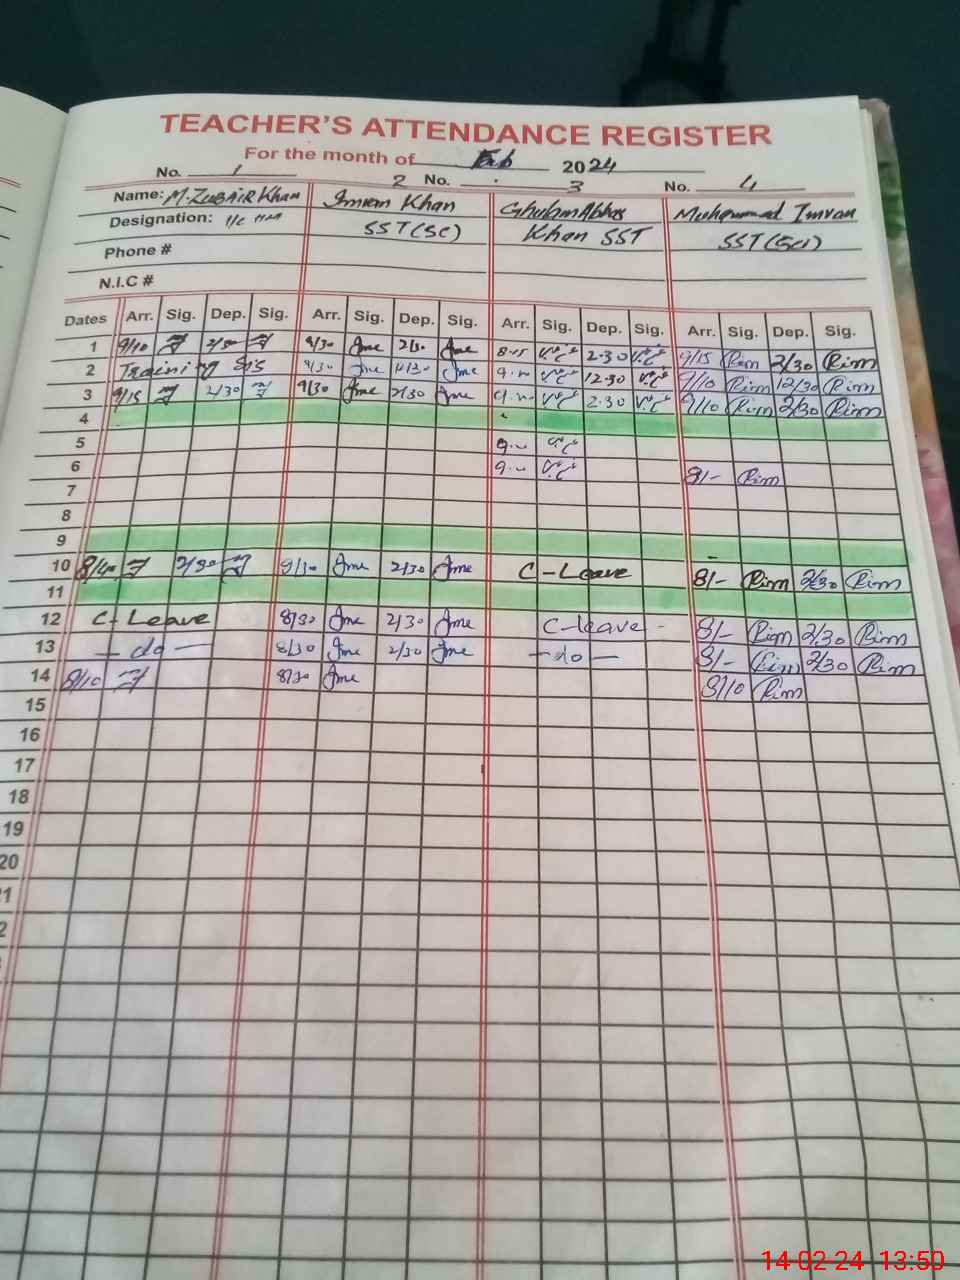 TEACHER'S ATTENDANCE REGISTER
For the month of Feb 2024
No. 1 2 No. 3 No. 4
Name: M. ZUBAIR Khan Imran Khan Ghulam Abbas Muhammad Imran
Designation: I/C HM SST (SC) Khan SST SST (Sci)
Phone #
N.I.C #
Dates Arr. Sig. Dep. Sig. Arr. Sig. Dep. Sig. Arr. Sig. Dep. Sig. Arr. Sig. Dep. Sig.
1 9/10 2/30 9/30 2/30 8-15 2-30 9/15 Rim 2/30 Rim
2 Training 9/30 12/30 12-30 9/10 Rim 12/30 Rim
3 9/15 2/30 9/30 2/30 2-30 9/10 Rim 2/30 Rim
4
5
6 8/- Rim
7
8
9
10 8/40 2/30 8/30 2/30 C-Leave 8/- Rim 2/30 Rim
11
12 C-Leave 8/30 2/30 C-Leave - 8/- Rim 2/30 Rim
13 - do - 8/30 2/30 - do - 8/- Rim 2/30 Rim
14 8/10 8/30 8/10 Rim
15
16
17
18
19
20
14-02-24 13:50